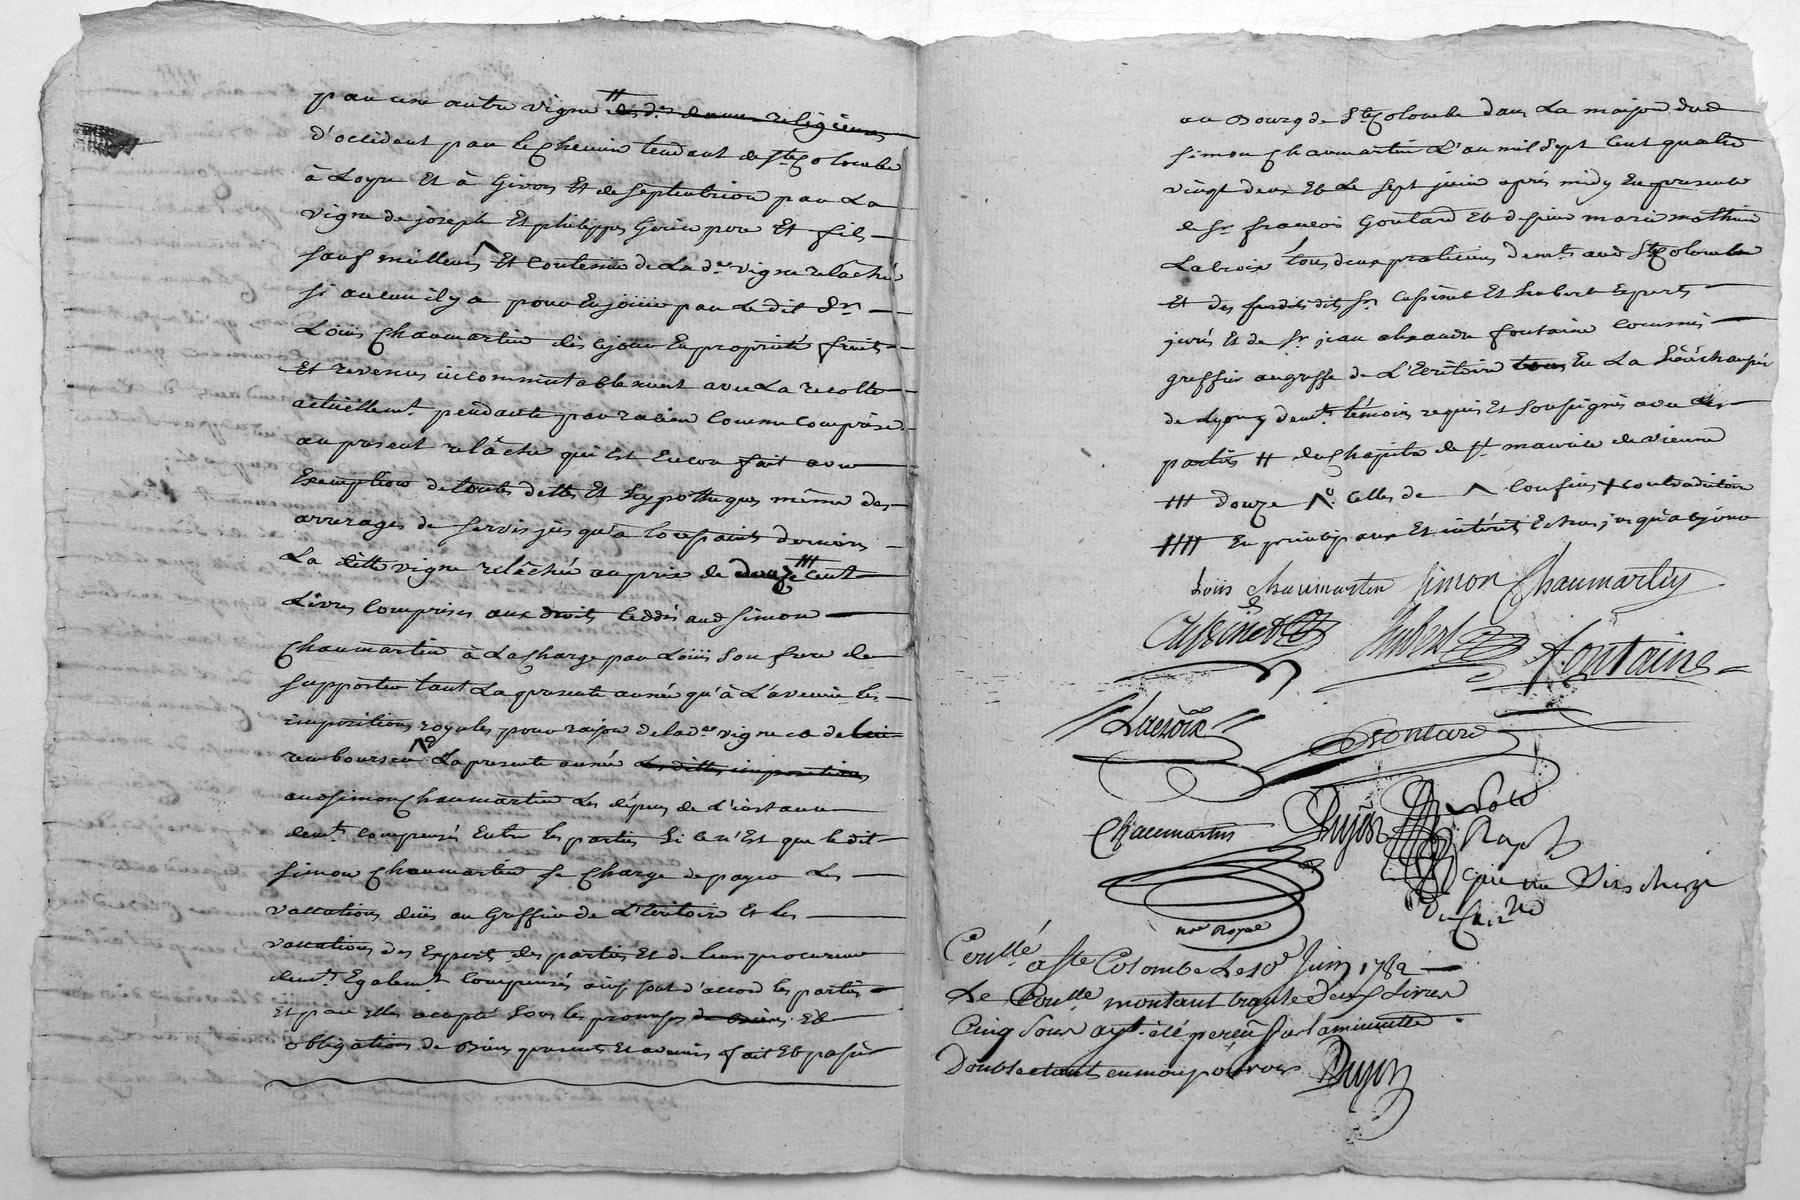 par une autre vigne # des d.es dames religieuses
d'occident par le chemin tendant de Ste Colombe
à Loyre Et à Givors Et de septentrion par La
vigne de joseph Et philippe pere Et fils
sauf meilleurs ^ Et Contenue de La d.te vigne relâchée
si aucun il y a pour En jouir par Le dit Sr
Loüis Chaumartin dès ce jour En propriété fruits
Et revenus incommutablement avec La recolte
actuëllem.t pendante par racine Comme Comprise
au present relâche qui Est Encore fait avec
Exemption de toutes dettes Et hypotheques même des
arrerages de servis jusqu'a la toussaints derniere
La ditte vigne relâchée au prix de douze ### Cent
Livres Comprises aux droits Ceddés aud Simon
Chaumartin à La Charge par Loüis Son frere de
supporter tant La presente année qu'à L'avenir les
impositions royales pour raison de la d.te vigne et de lui
rembourser La presente année Les dittes impositions
aud Simon Chaumartin Les dépens de L'instance
dem.t Compensés Entre les parties Si ce n'Est que le dit
Simon Chaumartin se Charge de payer Les
vaccations düës au Greffier de L'Ecritoire Et les
vaccations des Experts des parties Et de leurs procureurs
dem.t Egalem.t Compensés ainsi sont d'accord les parties
Et par Elles acepté Sous les promesses de biens Et
obligations de Biens presents Et avenir fait Et passé
au Bourg de Ste Colombe dans La maison dud
Simon Chaumartin L'an mil Sept Cent quatre
vingt deux Et Le Sept juin après midy En presence
de Sr françois Goutard Et de Sieur marie mathieu
Lacroix tous deux praticiens dem.ts aud Ste Colombe
Et des susdits dits Srs Cusinet Et Imbert Experts
jurés Et de Sr jean alexandre fontaine Commis
greffier au greffe de L'Ecritoire tous En La Sénéchaussée
de Lyon y dem.t témoins requis Et Soussignés avec les
parties # du Chapitre de St maurice de vienne
### douze celles de ^ Confins + contradictoire
#### En principaux Et intérêts Echus jusqu'a ce jour
Loüis chaumarten Simon Chaumartin
Cusinet Imbert Fontaine
Lacroix Goutard
Chaumartin Dujon
not.e Royal
Coullé a Ste Colombe Le 10e Juin 1782
Le Coullé montant trante deux Livres
Cinq Sous ayt. été perçu sur la minutte
Double etant en mon pouvoir Dujon